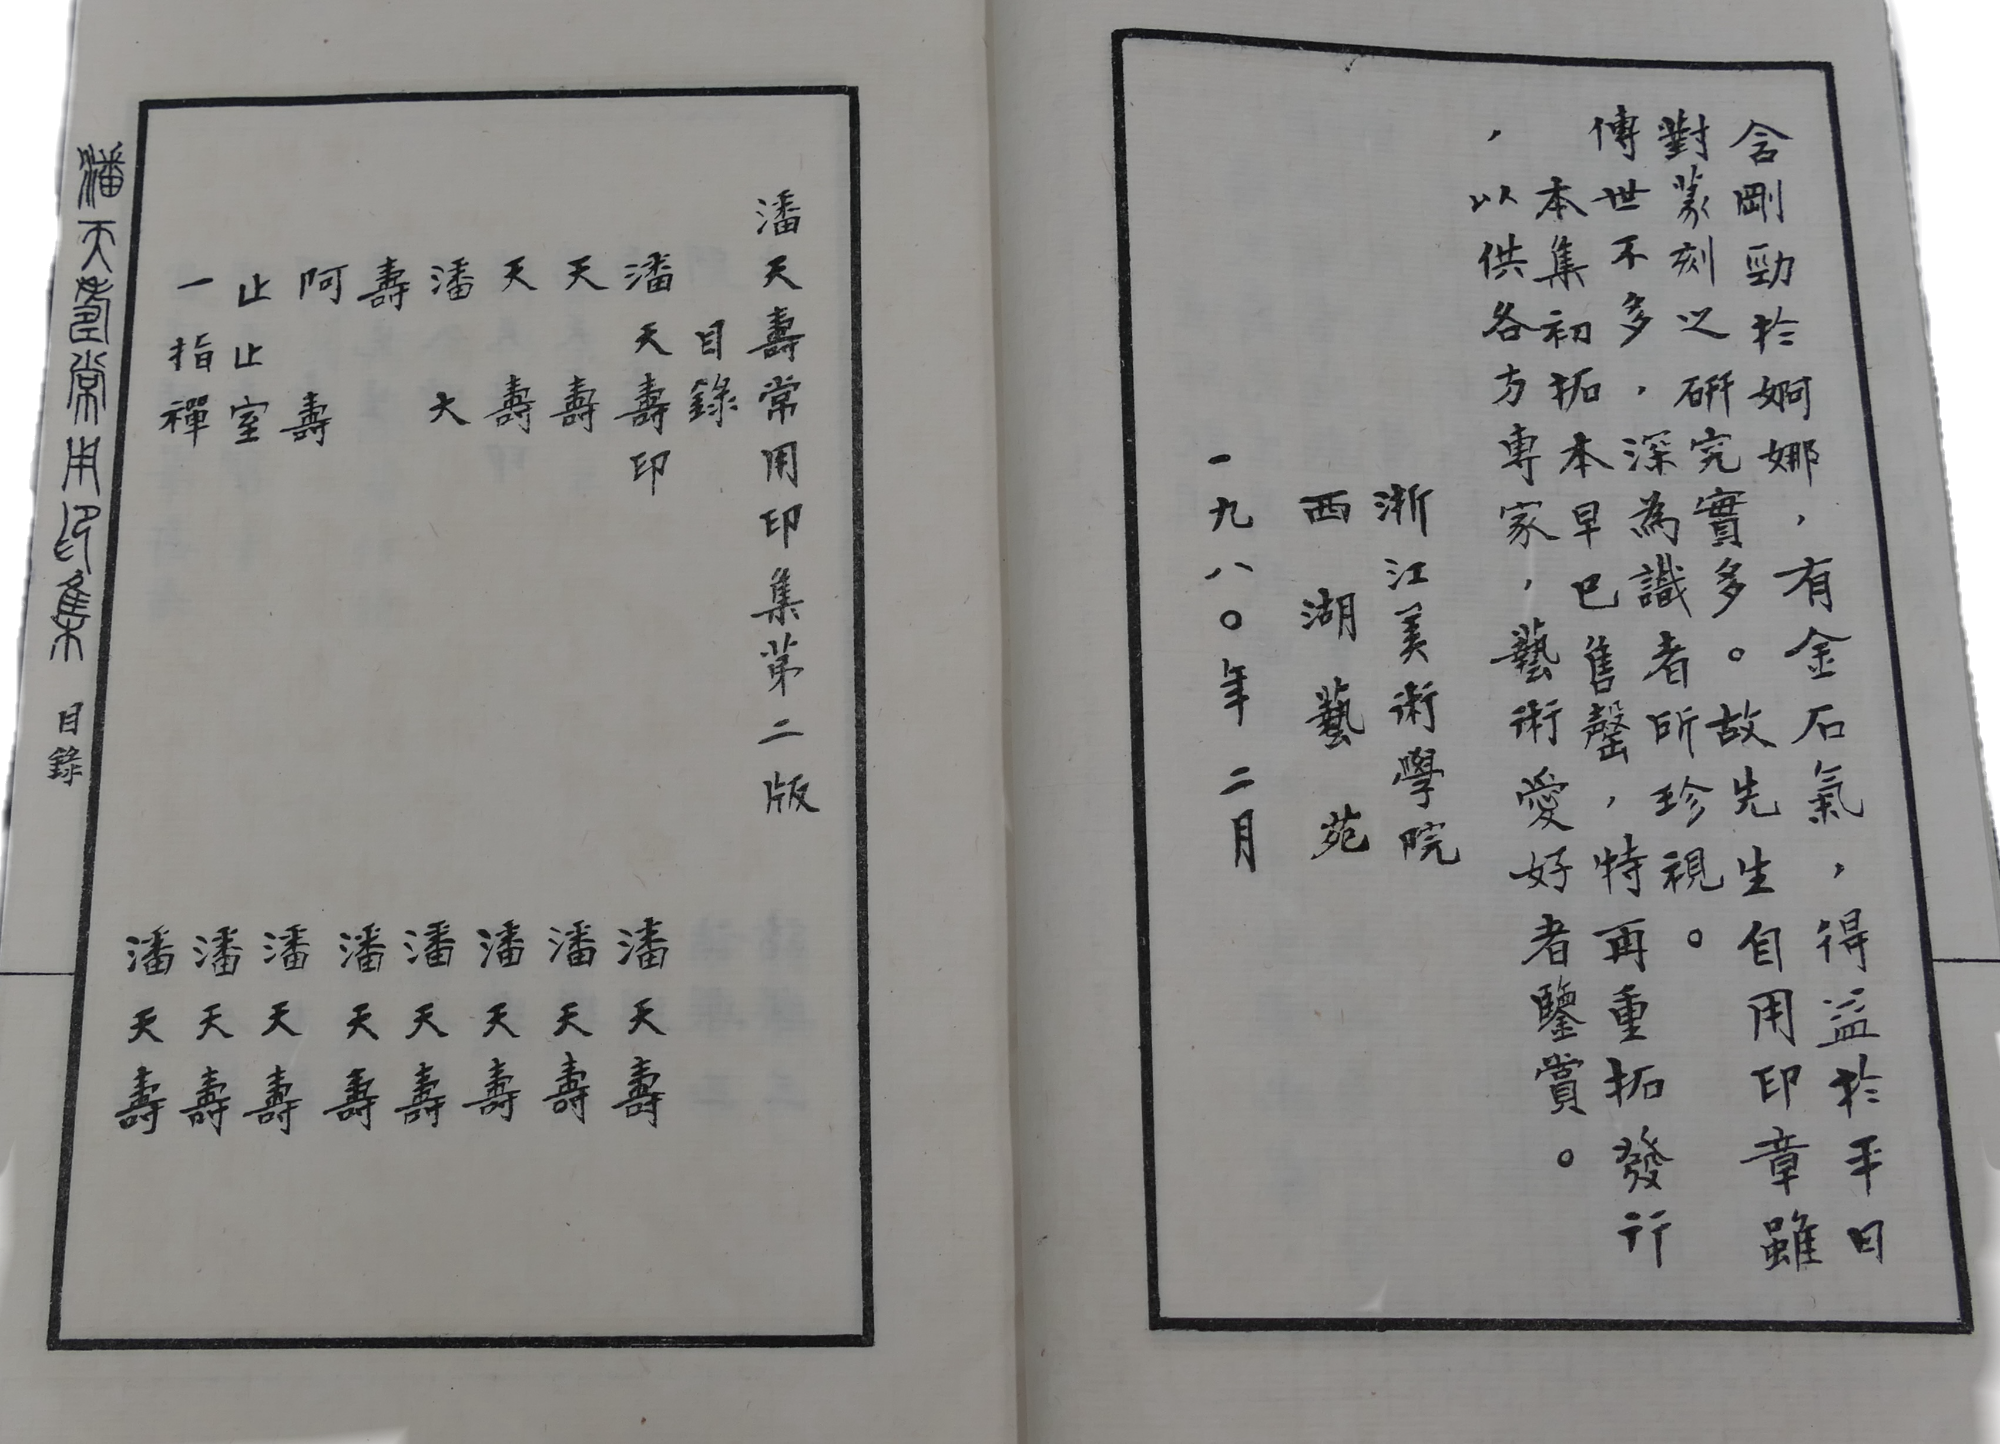 含剛勁於婀娜，有金石氣，得益於平日
對篆刻之研究實多。故先生自用印章雖
傳世不多，深為識者所珍視。
本集初拓本早已售罄，特再重拓發行
，以供各方專家，藝術愛好者鑒賞。
浙江美術學院
西湖藝苑
一九八〇年二月
潘天壽常用印集第二版
目錄
潘天壽印
潘天壽
天壽
潘天壽
天壽
潘天壽
潘大
潘天壽
壽
潘天壽
阿壽
潘天壽
止止室
潘天壽
一指禪
潘天壽
潘天壽常用印集 目錄